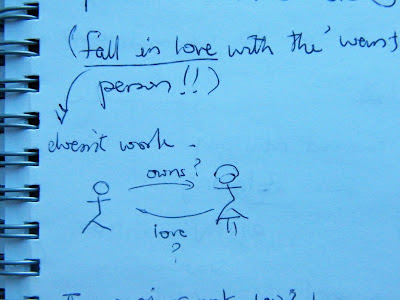 (fall in love with the
person!!)
doesn't work.
owns?
love
?